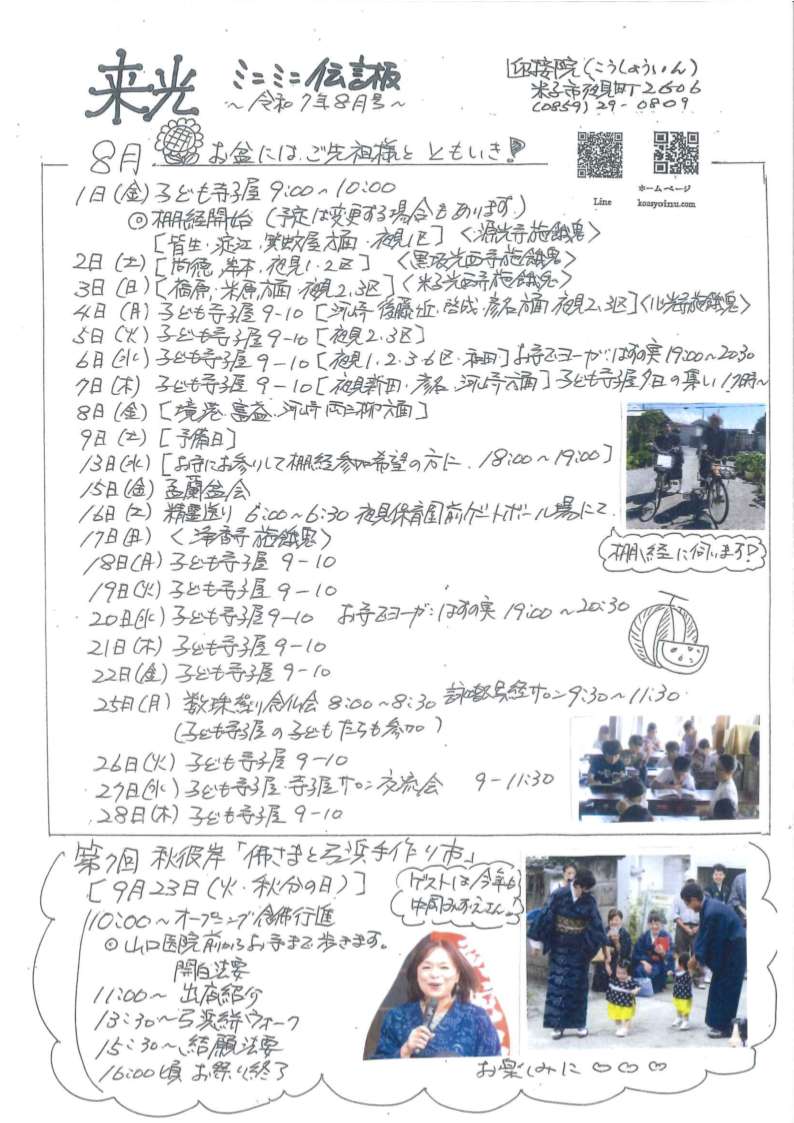 来光 ミニミニ伝言板
～令和7年8月号～
迎接院(こうしょういん)
米子市夜見町2606
(0859)29-0809
Line
ホームページ
8月 お盆には、ご先祖様と ともいき!
1日(金)子ども寺子屋 9:00～10:00
◎棚経開始 (予定は変更する場合もあります)
[皆生・淀江・巽蚊屋方面・夜見1区] <源光寺施餓鬼>
2日(土)[尚徳、岸本、夜見1・2区] <黒坂光西寺施餓鬼>
3日(日)[福原・米原方面・夜見2,3区]<米子光西寺施餓鬼>
4日(月)子ども寺子屋 9-10 [河崎 後藤丘・啓成・彦名方面 夜見2,3区]<心光寺施餓鬼>
5日(火)子ども寺子屋 9-10[夜見2.3区]
6日(水)子ども寺子屋 9-10[夜見1.2.3.6区・和田]お寺でヨーガ:はすの実 19:00～20:30
7日(木)子ども寺子屋 9-10[夜見新田・彦名・河崎方面]子ども寺子屋夕日の集い 17時～
8日(金)[境港・富益・河崎 両三柳方面]
9日(土)[予備日]
13日(水)[お寺にお参りして棚経参加希望の方に、18:00～19:00]
15日(金)盂蘭盆会
16日(土)精霊送り 6:00～6:30 夜見保育園前ゲートボール場にて
17日(日) <浄香寺施餓鬼>
棚経に伺います!
18日(月)子ども寺子屋 9-10
19日(火)子ども寺子屋 9-10
20日(水)子ども寺子屋9-10 お寺でヨーガ:はすの実 19:00～20:30
21日(木)子ども寺子屋 9-10
22日(金)子ども寺子屋 9-10
25日(月)数珠繰り念仏会 8:00～8:30 詠唱写経サロン9:30～11:30
(子ども寺子屋の子どもたちも参加)
26日(火)子ども寺子屋 9-10
27日(水)子ども寺子屋・寺子屋サロン交流会 9-11:30
28日(木)子ども寺子屋 9-10
第7回 秋彼岸「佛さまと弓浜手作り市」
[9月23日(火・秋分の日)]
ゲストは今年も
中岡みずえさん♪
10:00～オープニング念佛行進
◎山口医院前からお寺まで歩きます。
開白法要
11:00～ 出店紹介
13:30～弓浜絣ウォーク
15:30～結願法要
16:00頃 お祭り終了
お楽しみに♡♡♡